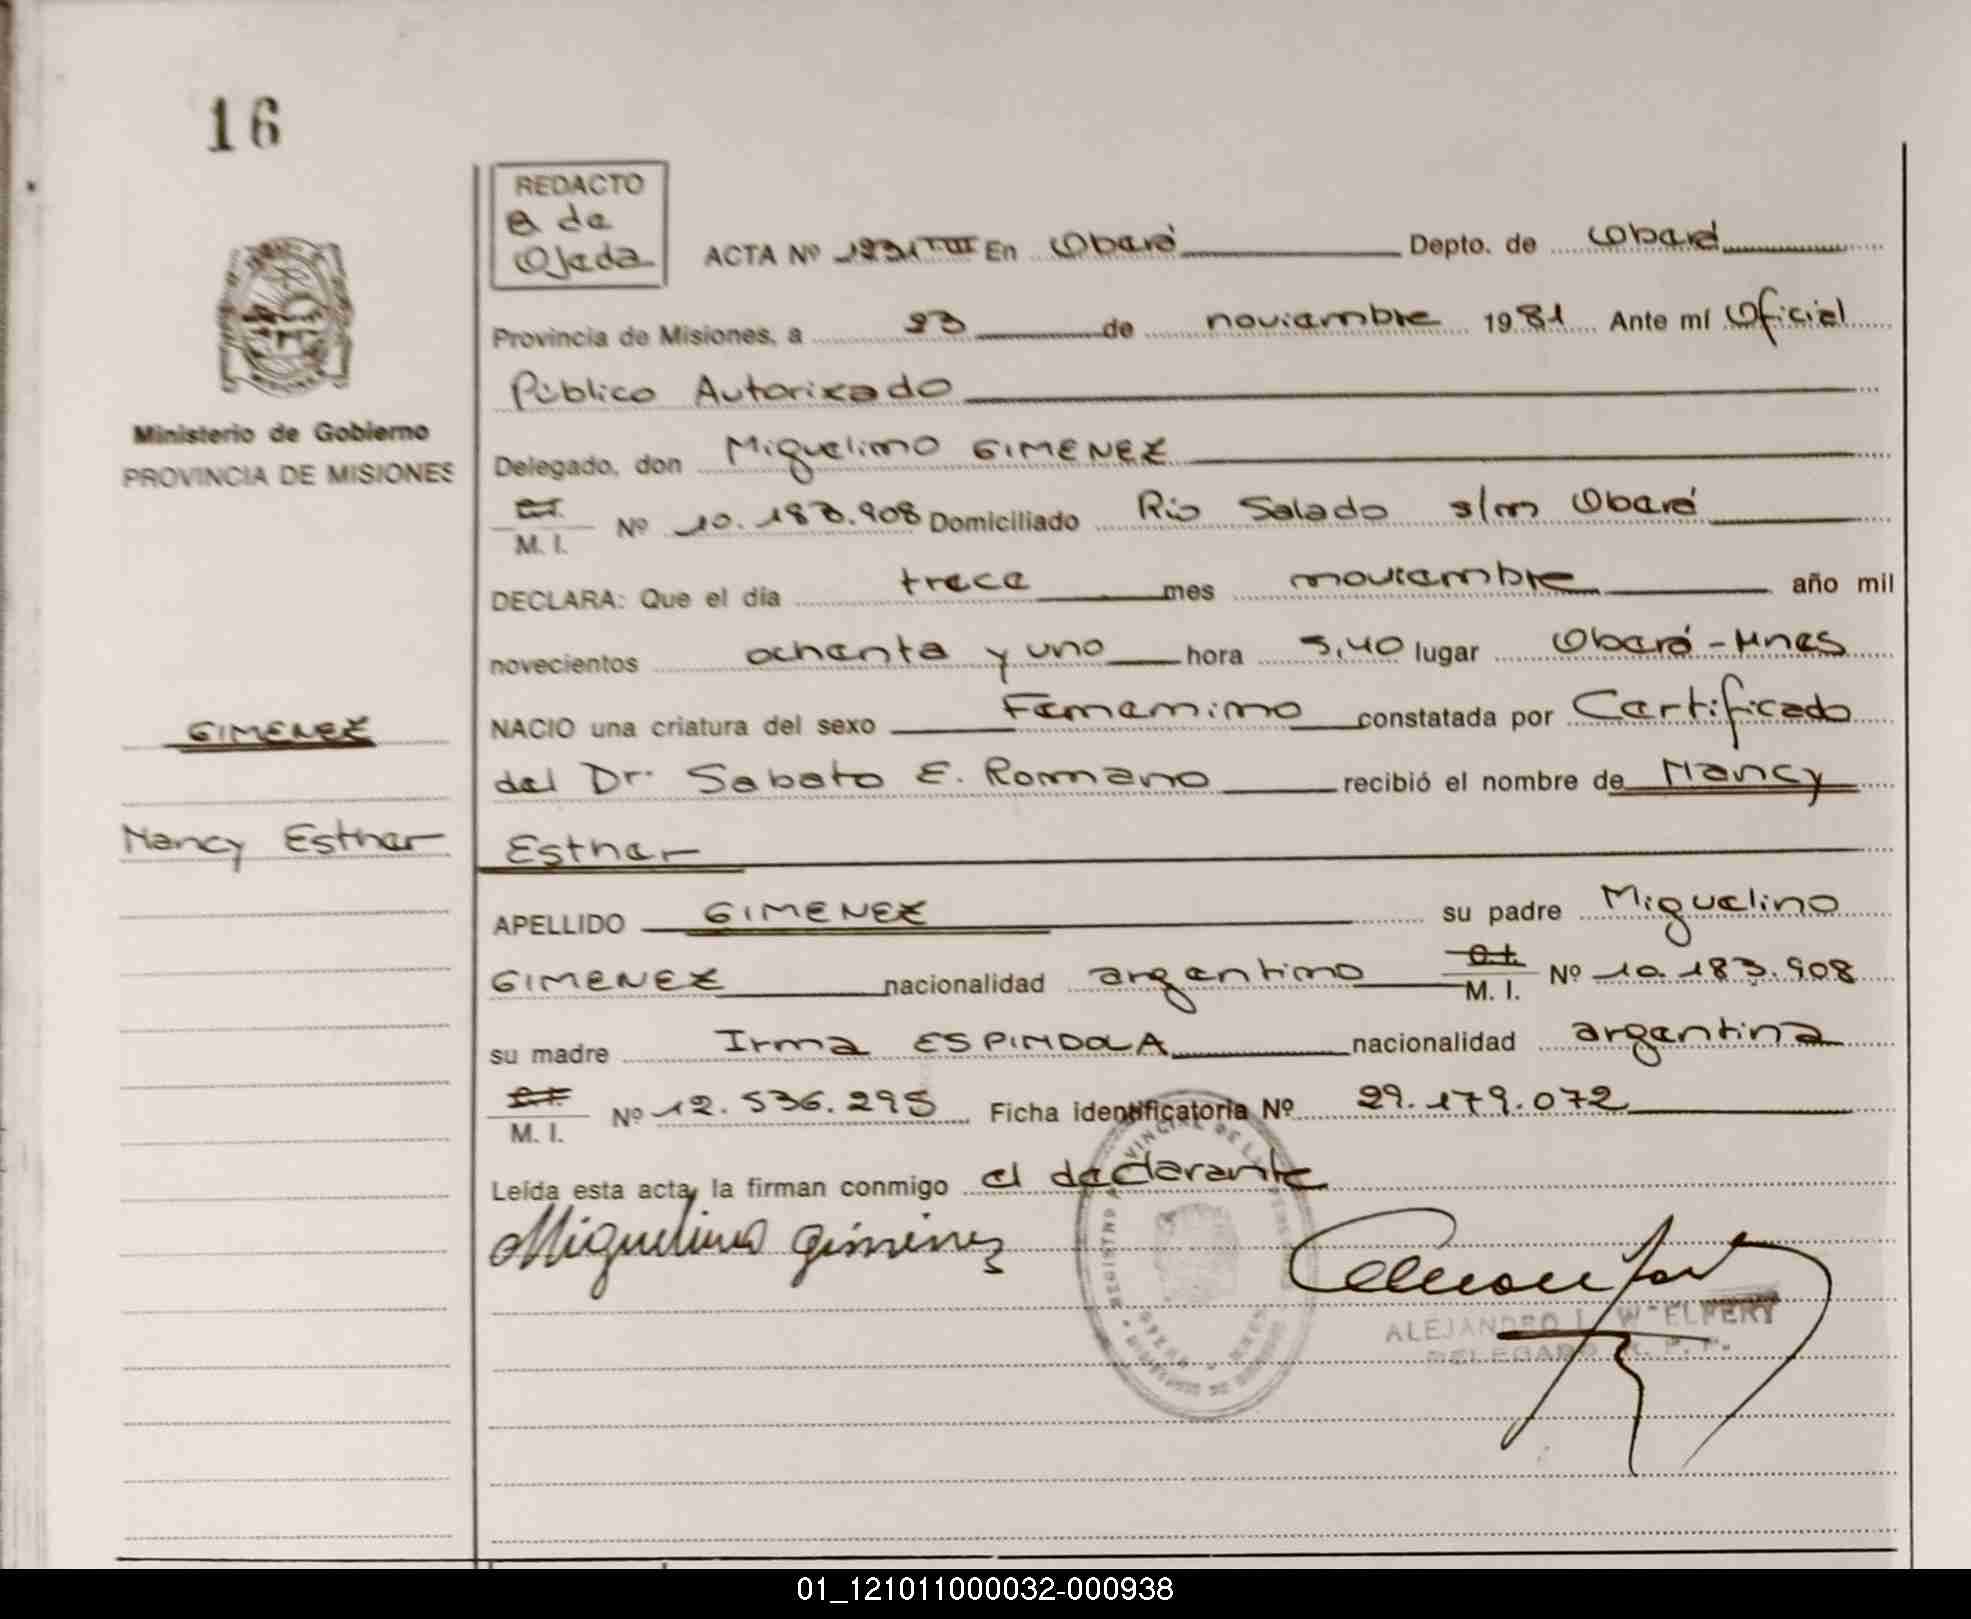 16
REDACTO
a de
Ojeda
ACTA Nº 1231 T III En Oberá Depto. de Oberá
Provincia de Misiones, a 23 de noviembre 1981 Ante mí Oficial
Público Autorizado
Ministerio de Gobierno
PROVINCIA DE MISIONES
Delegado, don Miguelino GIMENEZ
M. I. Nº 10.183.908 Domiciliado Rio Salado s/n Oberá
DECLARA: Que el día trece mes noviembre año mil
novecientos ochenta y uno hora 5,40 lugar Oberá-Mnes
GIMENEZ
NACIO una criatura del sexo Femenino constatada por Certificado
del Dr. Sabato E. Romano recibió el nombre de Nancy
Nancy Esther
Esther
APELLIDO GIMENEZ su padre Miguelino
GIMENEZ nacionalidad argentino M. I. Nº 10.183.908
su madre Irma ESPINDOLA nacionalidad argentina
M. I. Nº 12.536.295 Ficha identificatoria Nº 29.179.072
Leída esta acta, la firman conmigo el declarante
Miguelino Gimenez
ALEJANDRO
DELEGADO R. P. P.
01_121011000032-000938